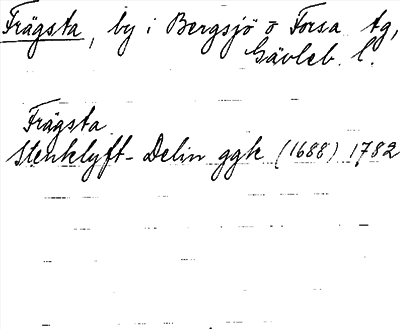 Frägsta, by i Bergsjö o Forsa tg,
Gävleb. l.
Frägsta
Stenklyft - Delin ggk (1688) 1782